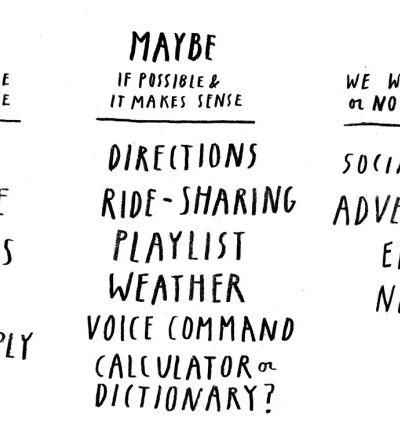 MAYBE
IF POSSIBLE &
IT MAKES SENSE
DIRECTIONS
RIDE-SHARING
PLAYLIST
WEATHER
VOICE COMMAND
CALCULATOR or
DICTIONARY?
WE
or NO